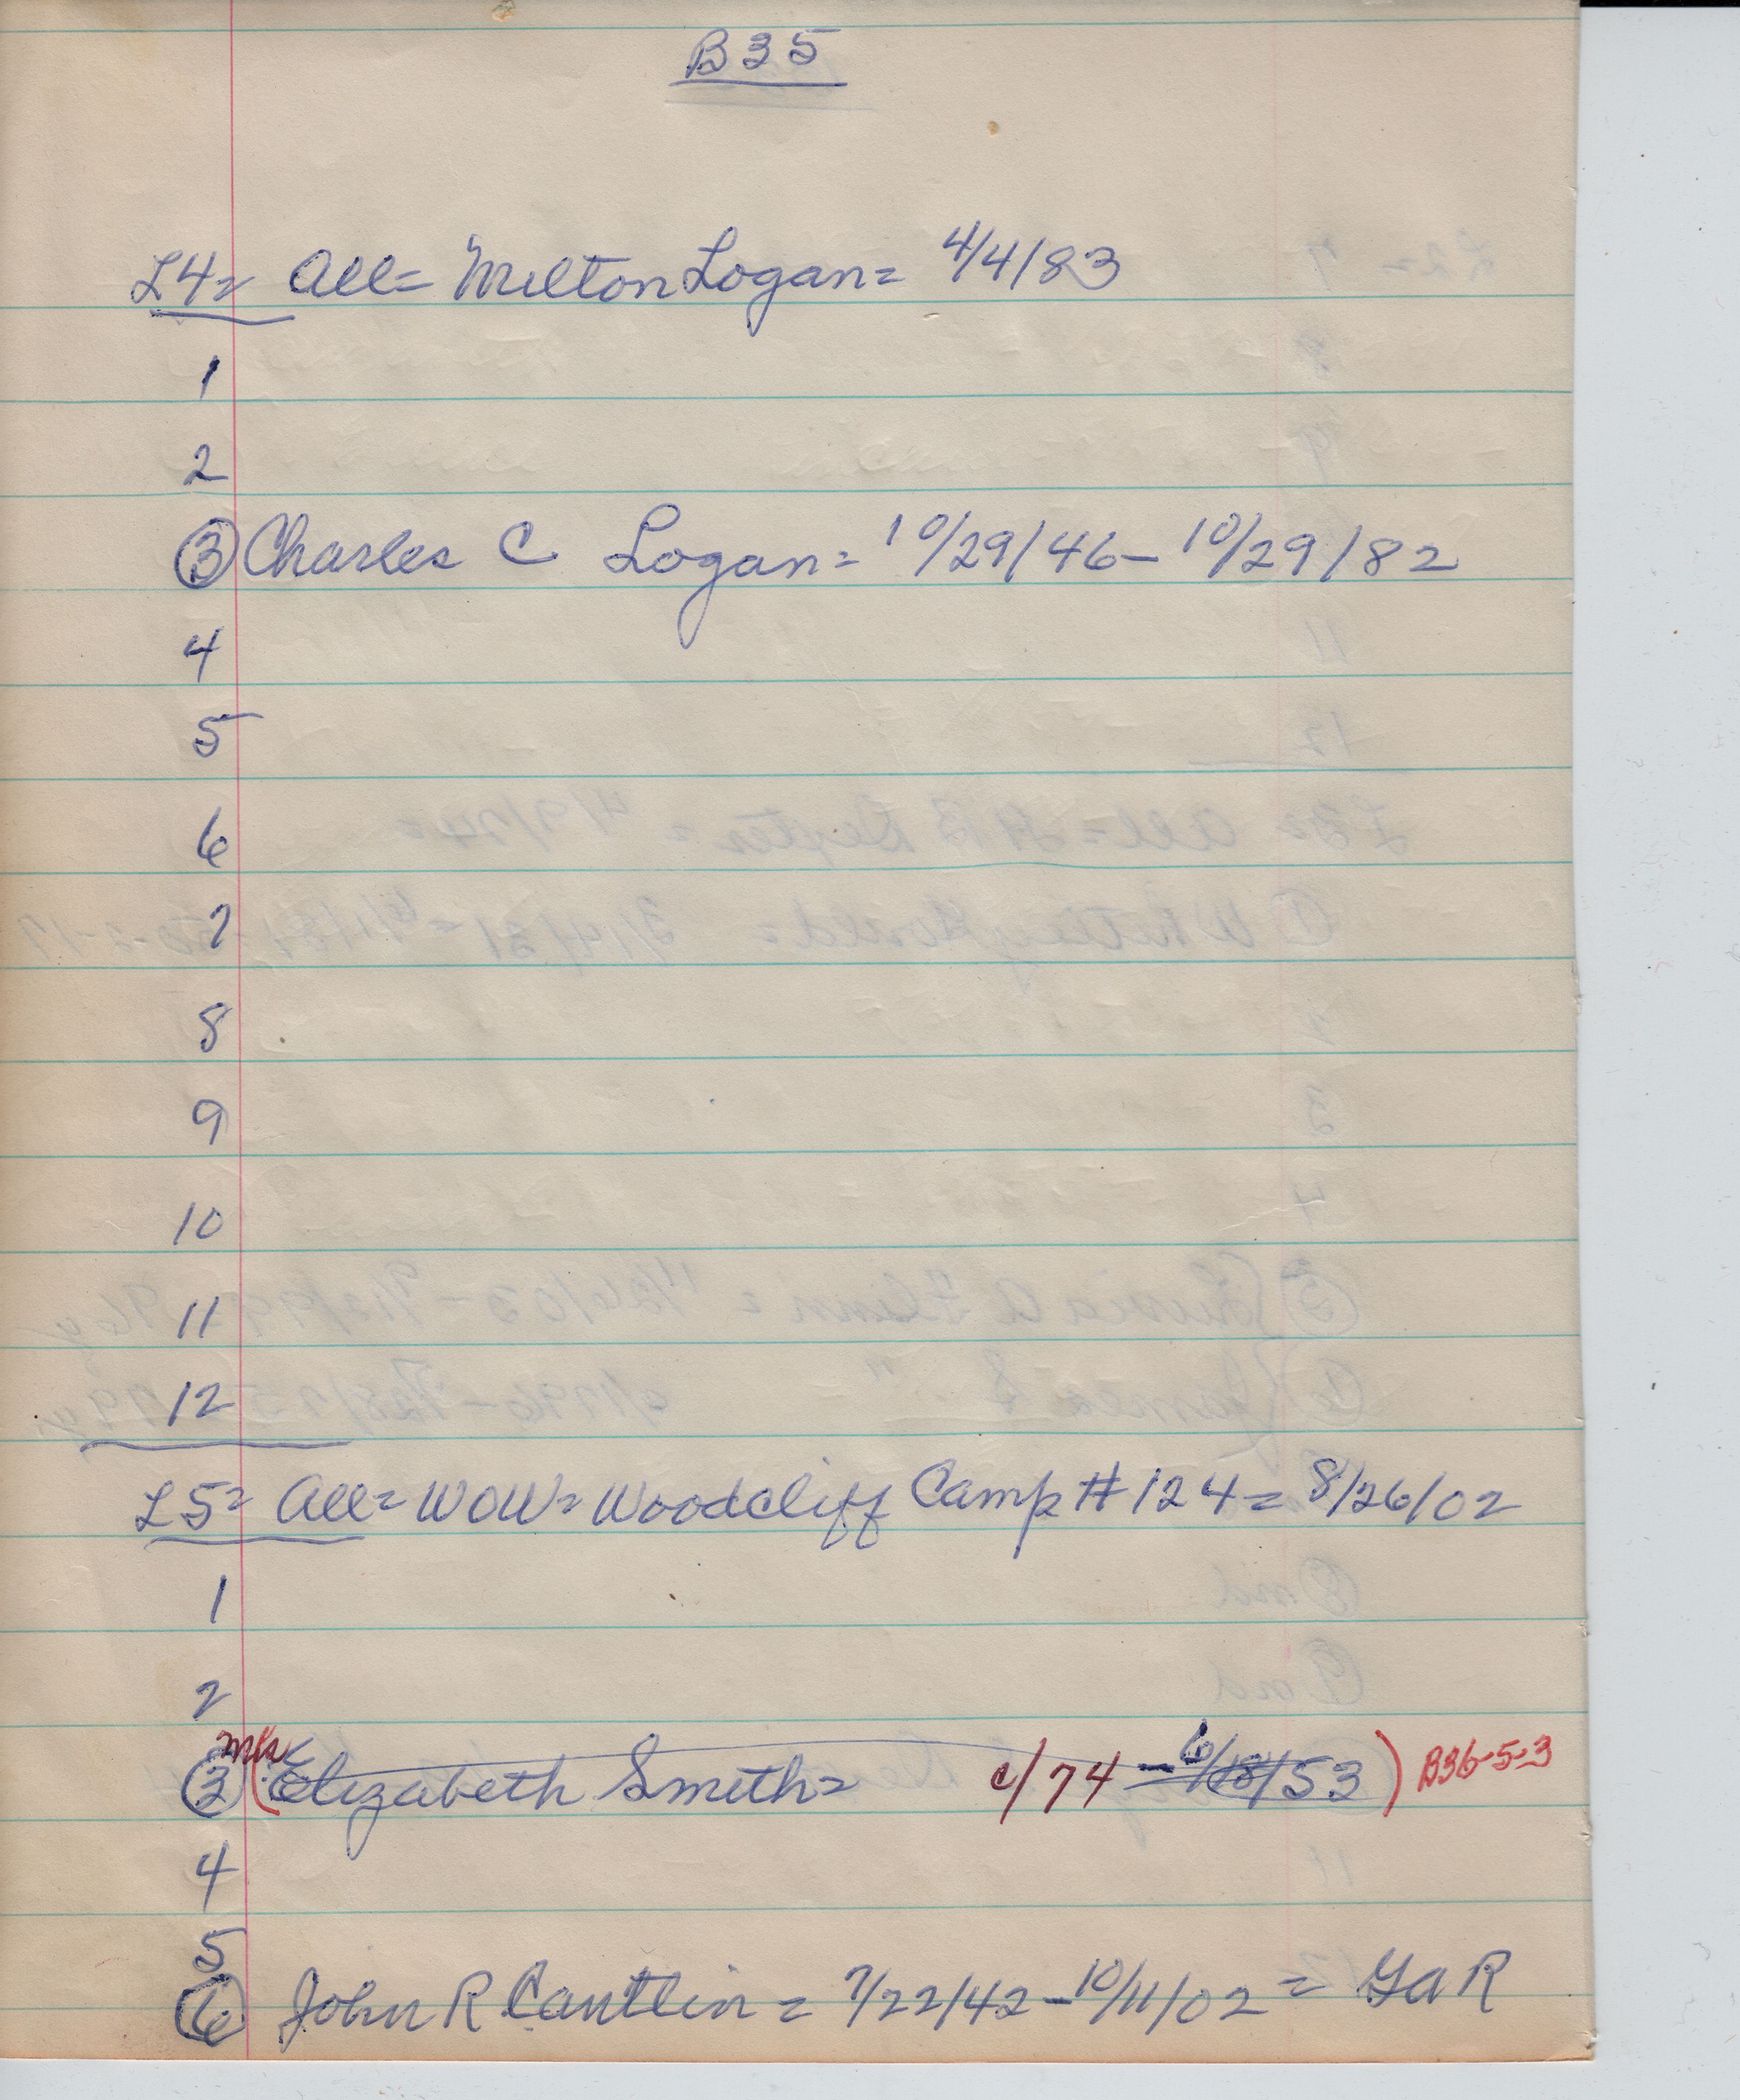 B35
L4= All= Milton Logan= 4/4/83
1
2
3 Charles C Logan= 10/29/46- 10/29/82
4
5
6
7
8
9
10
11
12
L5= All= WOW= Woodcliff Camp # 124= 8/26/02
1
2
3 (Elizabeth Smith= c/74 - 6/18/53) B36-5-3
4
5
6 John R Cantlin = 7/22/42-10/11/02= GaR